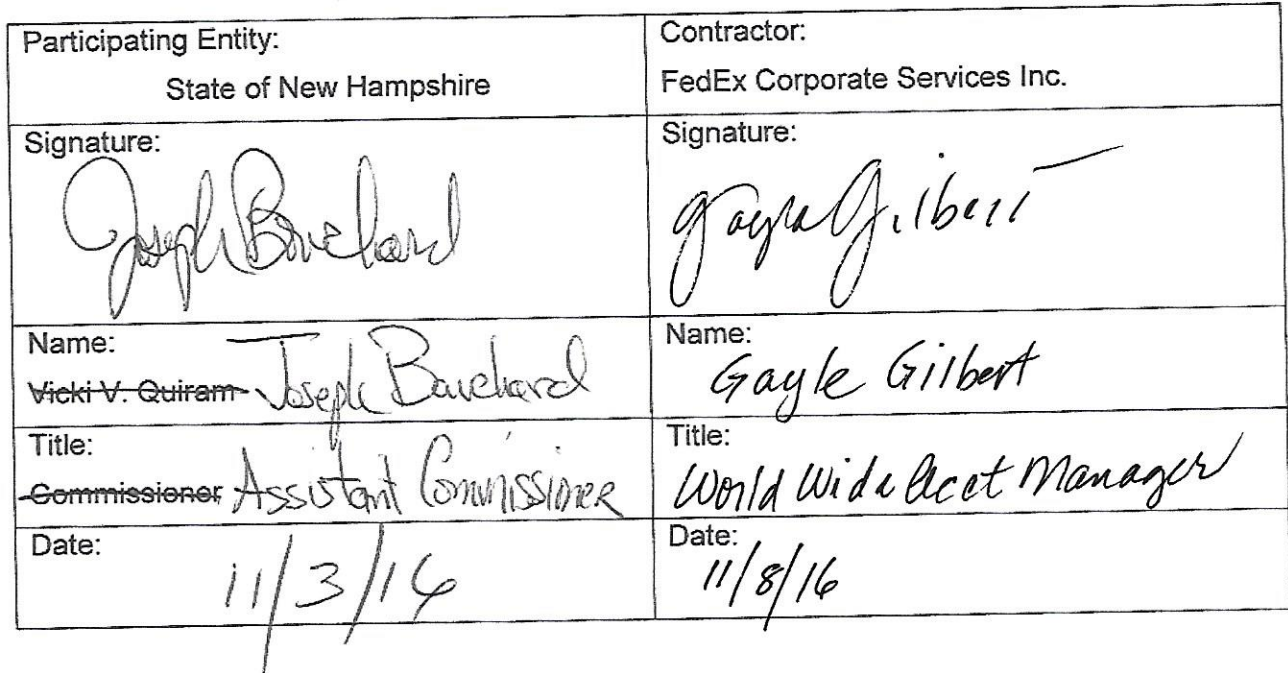 Participating Entity:
State of New Hampshire
Contractor:
FedEx Corporate Services Inc.
Signature:
Joseph Bouchard
Signature:
Gayle Gilbert
Name:
Vicki V. Quiram Joseph Bouchard
Name:
Gayle Gilbert
Title:
Commissioner Assistant Commissioner
Title:
World Wide Acct Manager
Date:
11/3/16
Date:
11/8/16